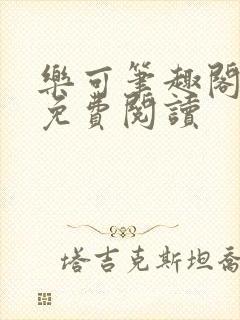 樂可筆趣閣
免費閱讀
塔吉克斯坦喬